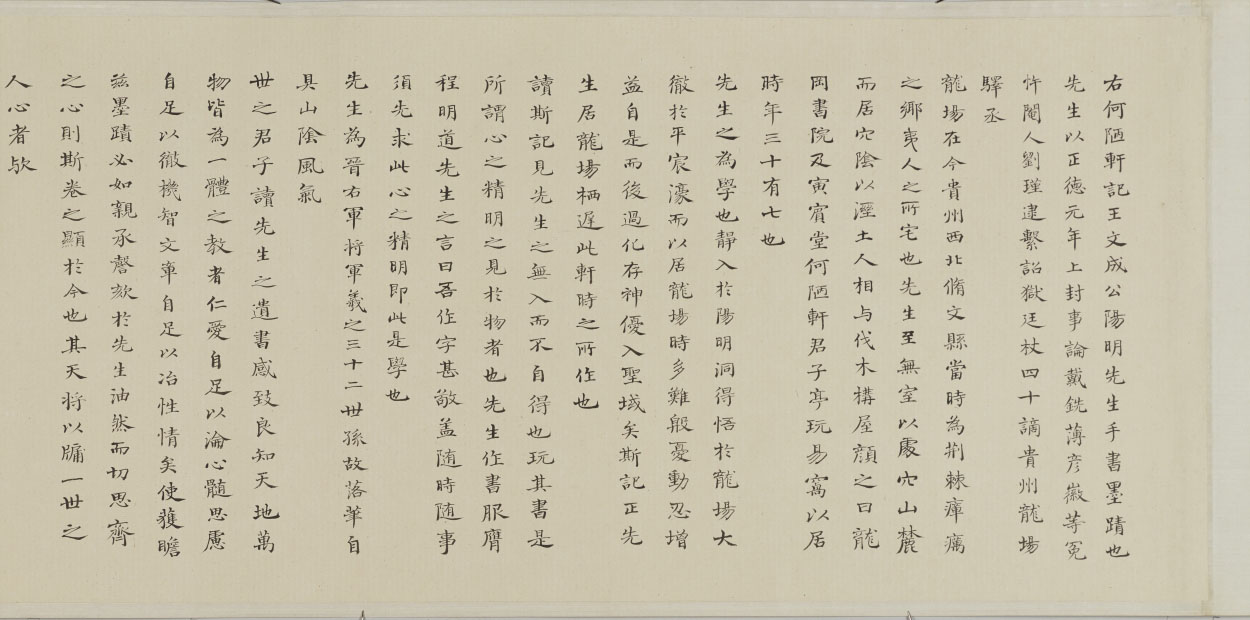 右何陋軒記王文成公陽明先生手書墨蹟也
先生以正德元年上封事論戴銑薄彦徽等冤
忤閹人劉瑾逮繫詔獄廷杖四十謫貴州龍場
驛丞
龍場在今貴州西北脩文縣當時為荆棘瘴癘
之鄉夷人之所宅也先生至無室以處穴山麓
而居穴陰以溼土人相与伐木構屋顔之曰龍
岡書院及寅賓堂何陋軒君子亭玩易窩以居
時年三十有七也
先生之為學也靜入於陽明洞得悟於龍場大
徹於平宸濠而以居龍場時多難殷憂動忍增
益自是而後過化存神優入聖域矣斯記正先
生居龍場栖遲此軒時之所作也
讀斯記見先生之無入而不自得也玩其書是
所謂心之精明之見於物者也先生作書服膺
程明道先生之言曰吾作字甚敬盖随時随事
須先求此心之精明即此是學也
先生為晉右軍將軍羲之三十二世孫故落筆自
具山陰風氣
世之君子讀先生之遺書感致良知天地萬
物皆為一體之教者仁愛自足以淪心髓思慮
自足以徹機智文章自足以冶性情矣使獲瞻
兹墨蹟必如親承謦欬於先生油然而切思齊
之心則斯卷之顯於今也其天將以牖一世之
人心者歟